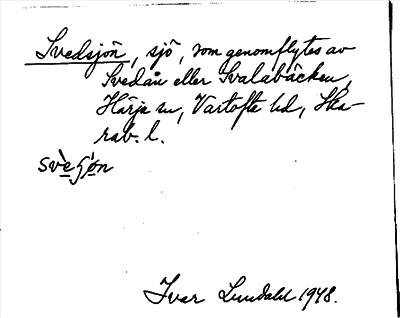 Svedsjön, sjö, som genomflytes av
Svedån eller Svalabäcken,
Härja sn, Vartofte hd, Ska-
rab. l.
svèǥ́øn
Ivar Lundahl 1948.